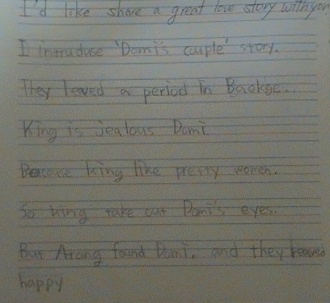 I'd like share a great love story with you
I introduse 'Domi's couple' story.
They leved a period in Baekge..
King is jealous Domi.
Because king like pretty women.
So king take out Domi's eyes.
But Arang found Domi. and they leaved
happy